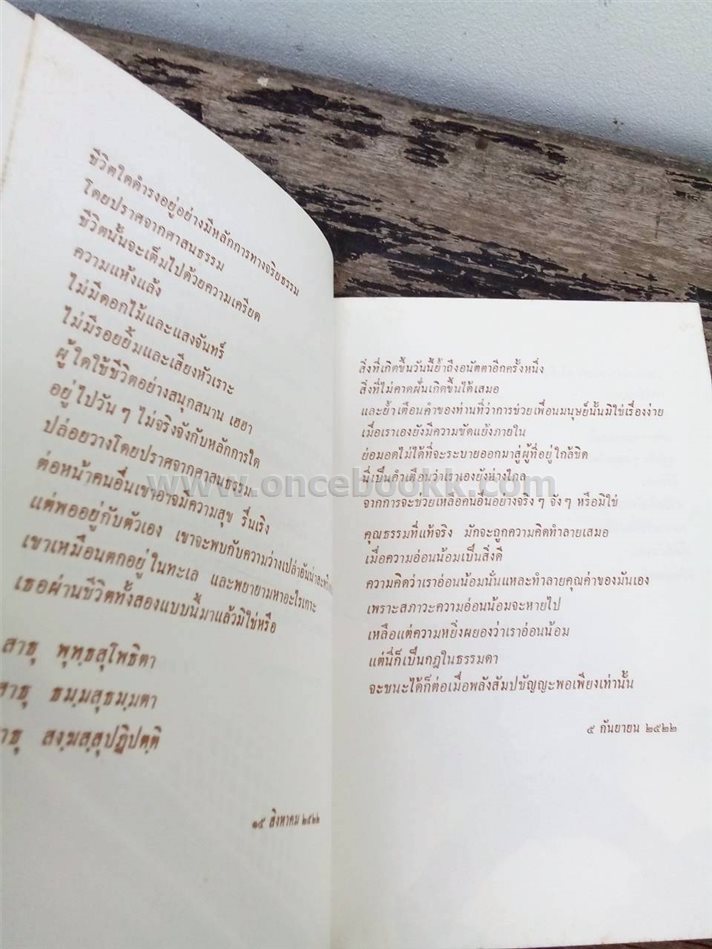 ชีวิตใดดำรงอยู่อย่างมีหลักการทางจริยธรรม
โดยปราศจากศาสนธรรม
ชีวิตนั้นจะเต็มไปด้วยความเครียด
ความแห้งแล้ง
ไม่มีดอกไม้และแสงจันทร์
ไม่มีรอยยิ้มและเสียงหัวเราะ
ผู้ใดใช้ชีวิตอย่างสนุกสนาน เฮฮา
อยู่ไปวันๆ ไม่จริงจังกับหลักการใด
ปล่อยวางโดยปราศจากศาสนธรรม
ต่อหน้าคนอื่นเขาอาจมีความสุข รื่นเริง
แต่พออยู่กับตัวเอง เขาจะพบกับความว่างเปล่าอัน
เขาเหมือนตกอยู่ในทะเล และพยายามหาอะไรเกาะ
เธอผ่านชีวิตทั้งสองแบบนี้มาแล้วมิใช่หรือ
สาธุ พุทฺธสุโพธิตา
สาธุ ธมฺมสุธมฺมตา
สาธุ สงฺฆสฺสุปฏิปตฺติ
๑๕ สิงหาคม ๒๕๒๒
สิ่งที่เกิดขึ้นวันนี้ย้ำถึงอนัตตาอีกครั้งหนึ่ง
สิ่งที่ไม่คาดฝันเกิดขึ้นได้เสมอ
และย้ำเตือนคำของท่านที่ว่าการช่วยเพื่อนมนุษย์นั้นมิใช่เรื่องง่าย
เมื่อเราเองยังมีความขัดแย้งภายใน
ย่อมอดไม่ได้ที่จะระบายออกมาสู่ผู้ที่อยู่ใกล้ชิด
นี่เป็นคำเตือนว่าเราเองยังห่างไกล
จากการจะช่วยเหลือคนอื่นอย่างจริงๆ จังๆ หรือมิใช่
คุณธรรมที่แท้จริง มักจะถูกความคิดทำลายเสมอ
เมื่อความอ่อนน้อมเป็นสิ่งดี
ความคิดว่าเราอ่อนน้อมนั่นแหละทำลายคุณค่าของมันเอง
เพราะสภาวะความอ่อนน้อมจะหายไป
เหลือแต่ความหยิ่งผยองว่าเราอ่อนน้อม
แต่นี่ก็เป็นกฎในธรรมดา
จะชนะได้ก็ต่อเมื่อพลังสัมปชัญญะพอเพียงเท่านั้น
๕ กันยายน ๒๕๒๒
www.oncebookk.com